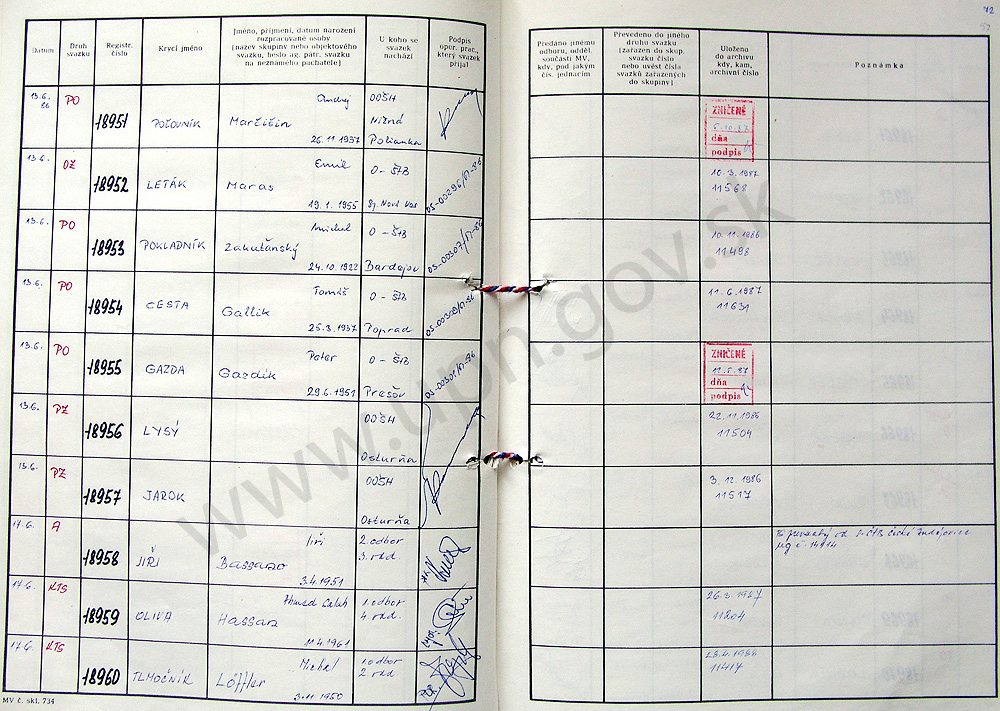 72
Datum
Druh svazku
Registr. číslo
Krycí jméno
Jméno, příjmení, datum narození
rozpracované osoby
(název skupiny nebo objektového
svazku, heslo ag. pátr. svazku
na neznámého pachatele)
U koho se
svazek
nachází
Podpis
oper. prac.,
který svazek
přijal
Předáno jinému
odboru, odděl.
součásti MV,
kdy, pod jakým
čís. jednacím
Převedeno do jiného
druhu svazku
(zařazen do skup.
svazku číslo
nebo uvést čísla
svazků zařazených
do skupiny)
Uloženo
do archivu
kdy, kam,
archivní číslo
Poznámka
13.6. 86 PO 18951 POĽOVNÍK Ondrej Marčišin 26.11.1937 OOŠH Nižná Polianka
ZNIČENÉ
dňa
podpis
13.6. OZ 18952 LETÁK Emil Maras 19.1.1955 O-ŠtB Sp. Nová Ves
10.3.1987
11568
13.6. PO 18953 POKLADNÍK Michal Zakuťanský 24.10.1922 O-ŠtB Bardejov
10.11.1986
11498
13.6. PO 18954 CESTA Tomáš Gallik 25.3.1937 O-ŠtB Poprad
11.6.1987
11631
13.6. PO 18955 GAZDA Peter Gazdik 29.6.1951 O-ŠtB Prešov
ZNIČENÉ
11.5.87
dňa
podpis
13.6. PZ 18956 LYSÝ OOŠH Osturňa
22.11.1986
11504
13.6. PZ 18957 JAROK OOŠH Osturňa
3.12.1986
11517
17.6. A 18958 JIŘÍ Jiří Bassano 3.4.1951 2.odbor 3.odd.
17.6. KTS 18959 OLIVA Ahmed Salah Hassan 11.4.1961 1.odbor 4.odd.
11204
17.6. KTS 18960 TLMOČNÍK Michal Löffler 3.11.1950 1.odbor 2.odd
11417
MV č. skl. 734
www.upn.gov.sk